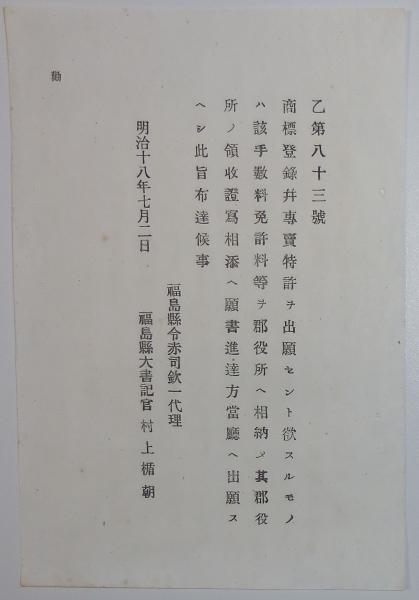 乙第八十三號
商標登錄幷專賣特許ヲ出願セント欲スルモノ
ハ該手數料免許料等ヲ郡役所ヘ相納メ其郡役
所ノ領收證寫相添ヘ願書進達方當廳ヘ出願ス
ヘシ此旨布達候事
福島縣令赤司欽一代理
明治十八年七月二日
福島縣大書記官 村上楯朝
勸